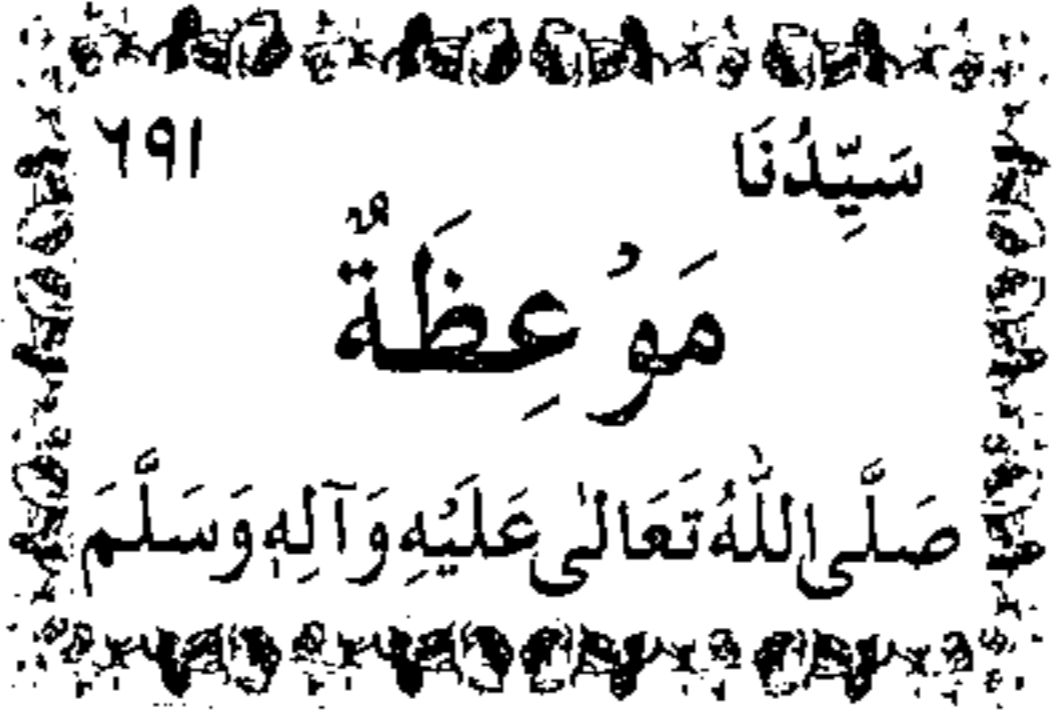 سَيِّدُنَا ٦٩١
مَوْعِظَةٌ
صَلَّى اللّٰهُ تَعَالٰى عَلَيْهِ وَآلِهٖ وَسَلَّمَ